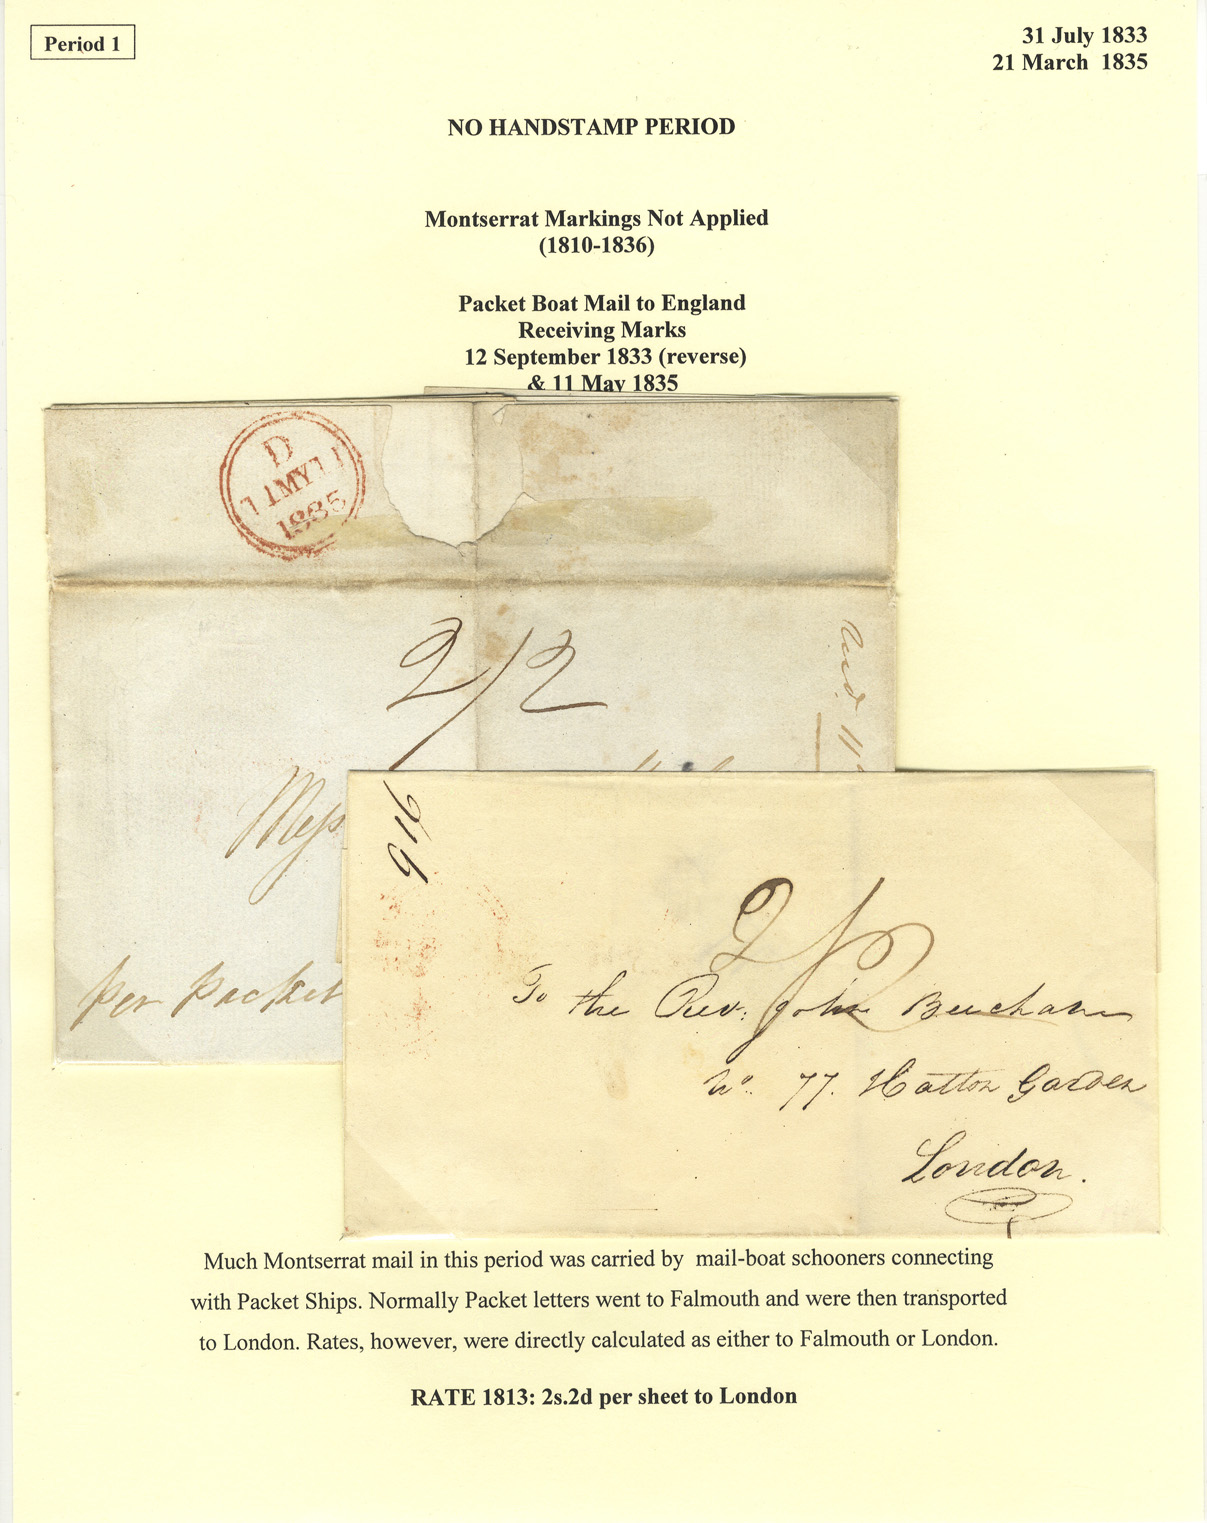 Period 1
31 July 1833
21 March 1835
NO HANDSTAMP PERIOD
Montserrat Markings Not Applied
(1810-1836)
Packet Boat Mail to England
Receiving Marks
12 September 1833 (reverse)
& 11 May 1835
D
11MY11
1835
2/2
Mess
per Packet
2/2
To the Rev: John Beecham
No. 77. Hatton Garden
London.
Much Montserrat mail in this period was carried by mail-boat schooners connecting
with Packet Ships. Normally Packet letters went to Falmouth and were then transported
to London. Rates, however, were directly calculated as either to Falmouth or London.
RATE 1813: 2s.2d per sheet to London